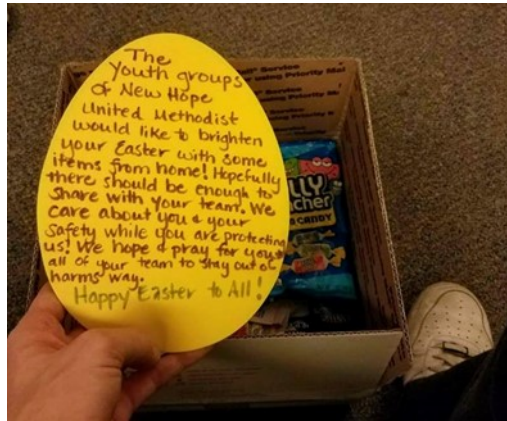 The
Youth groups
of New Hope
United Methodist
would like to brighten
your Easter with some
items from home! Hopefully
there should be enough to
share with your team. We
care about you & your
safety while you are protecting
us! We hope & pray for you &
all of your team to stay out of
harms way.
Happy Easter to All!
Service
using Priority Mail
Service
using Priority
LLY
cher
CANDY